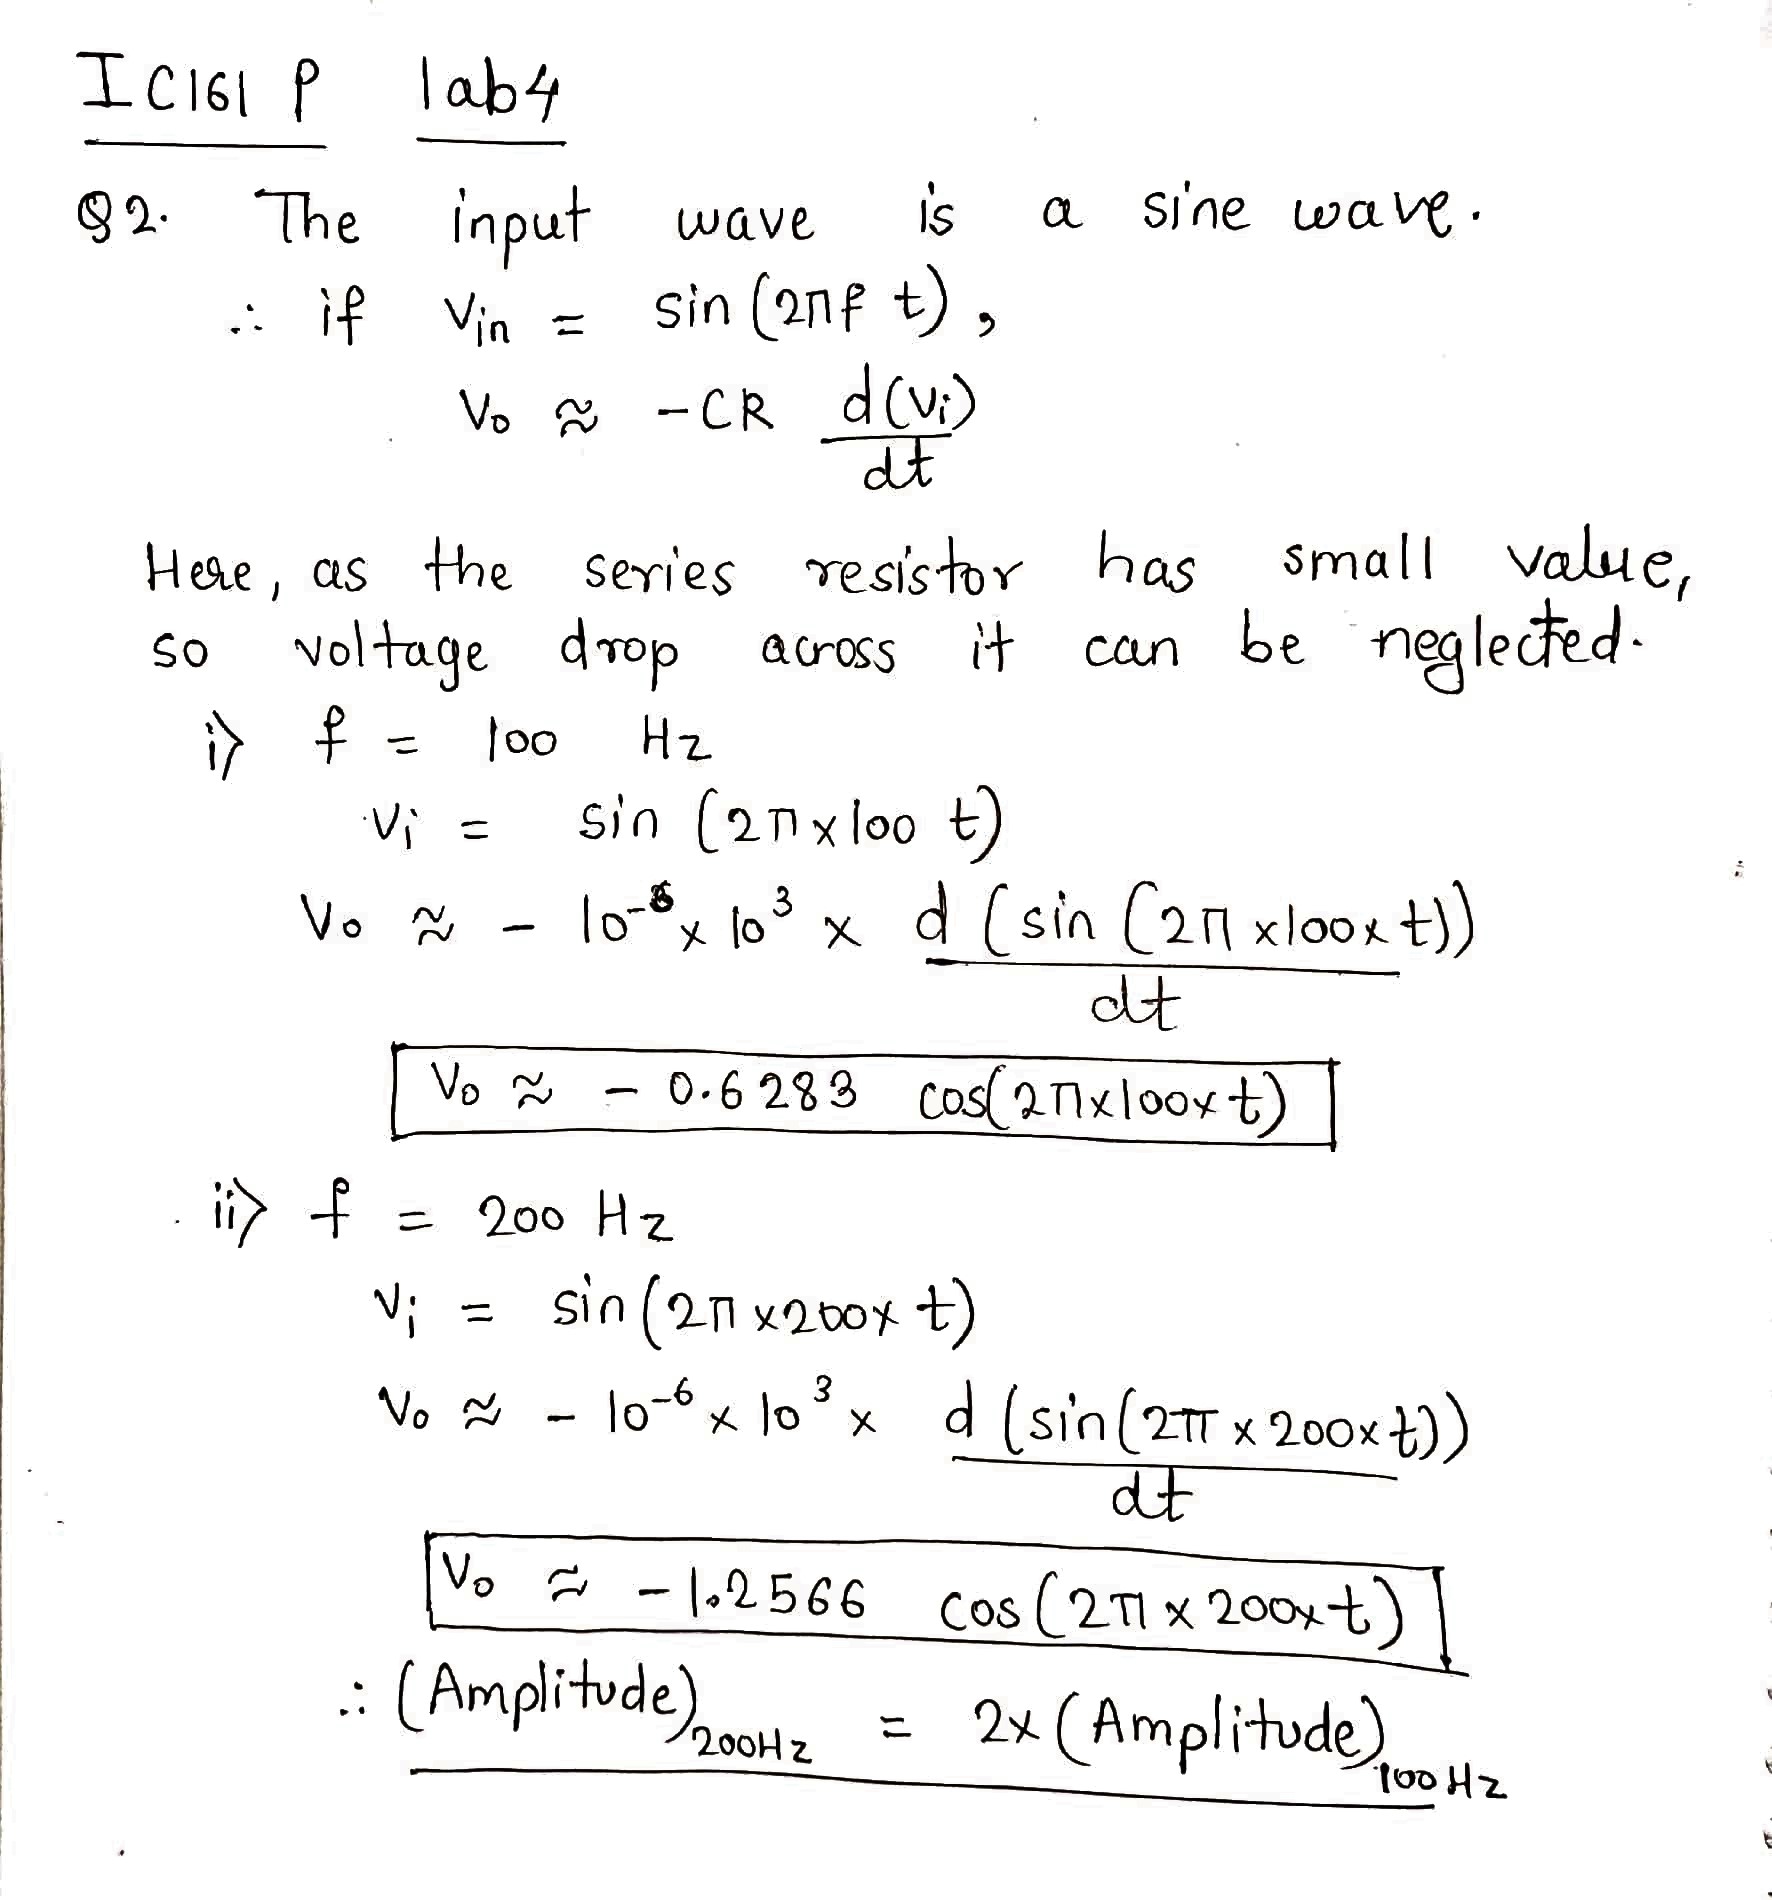 IC161 P lab4
Q2. The input wave is a sine wave.
∴ if Vin = sin (2πf t),
Vo ≈ -CR d(Vi)/dt
Here, as the series resistor has small value,
so voltage drop across it can be neglected.
i) f = 100 Hz
Vi = sin (2π×100 t)
Vo ≈ - 10⁻⁶ × 10³ × d (sin (2π ×100×t))/dt
Vo ≈ - 0.6283 cos(2π×100×t)
ii) f = 200 Hz
Vi = sin(2π ×200× t)
Vo ≈ - 10⁻⁶ × 10³ × d (sin(2π × 200×t))/dt
Vo ≈ -1.2566 cos (2π × 200×t)
∴ (Amplitude)200Hz = 2× (Amplitude)100Hz